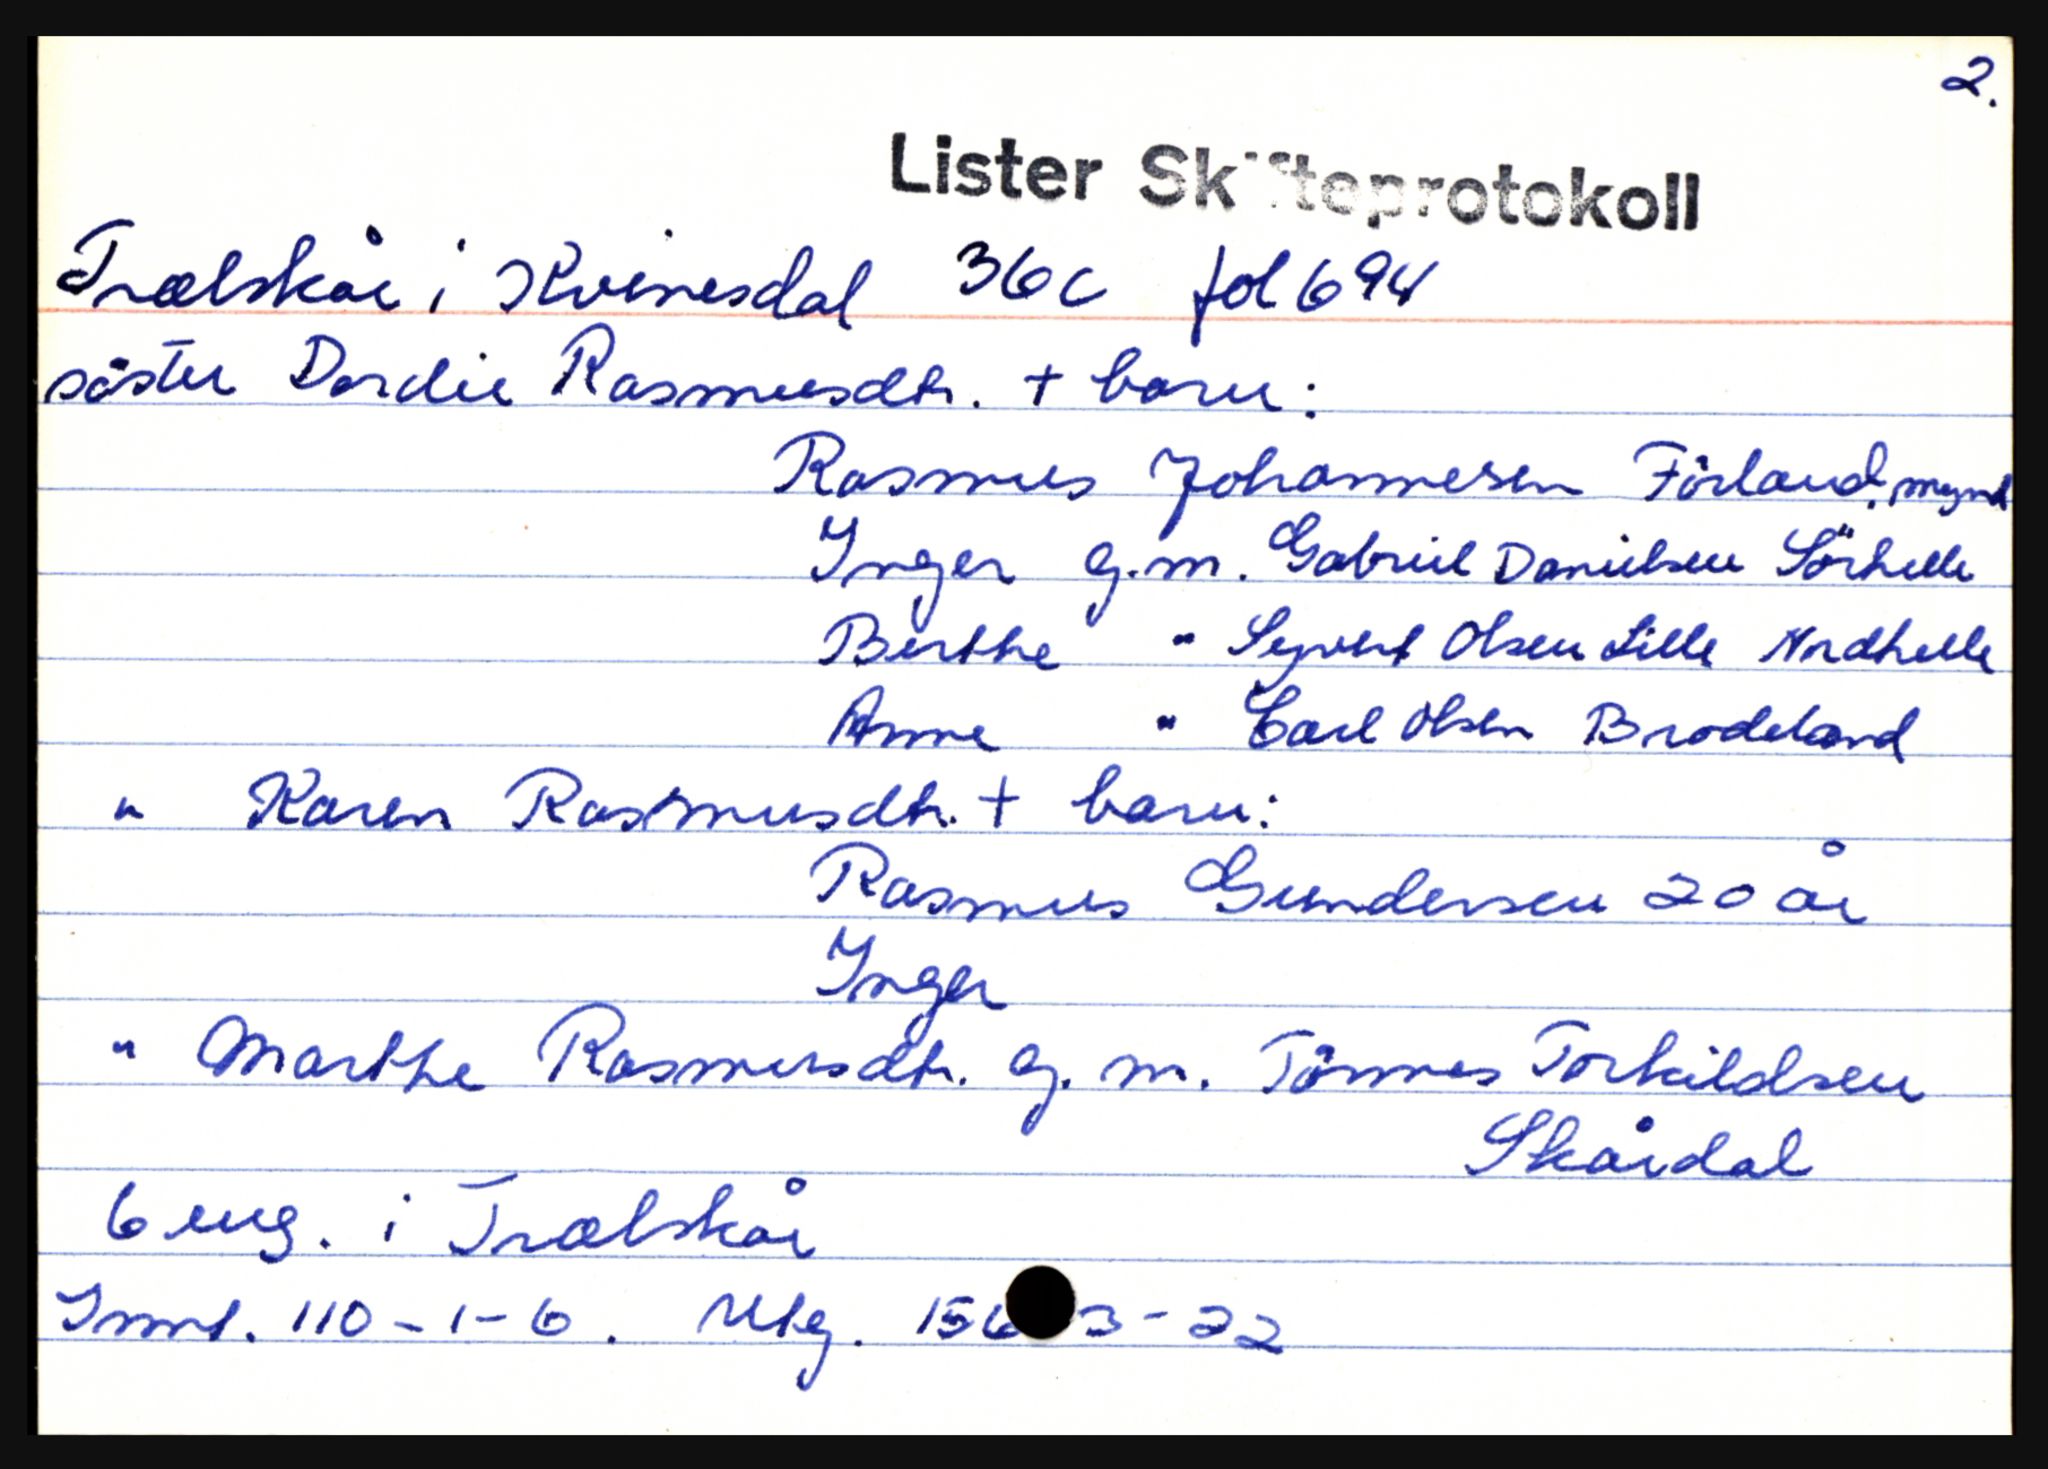 2.
Lister Skifteprotokoll
Trælskår i Kvinesdal 36c fol 694
söster Dordie Rasmusdtr. + barn:
Rasmus Johannesen Förland, mynd.
Inger g.m. Gabriel Danielsen Sörhelle
Berthe " Seyvert Olsen Lille Nordhelle
Anne " Carl Olsen Brodeland
" Karen Rasmusdtr. + barn:
Rasmus Gundersen 20 år
Inger
" Marthe Rasmusdtr. g. m. Tönnes Torkildsen
Skårdal
6 eng. i Trælskår
Innt. 110-1-6. Utg. 156 3-22